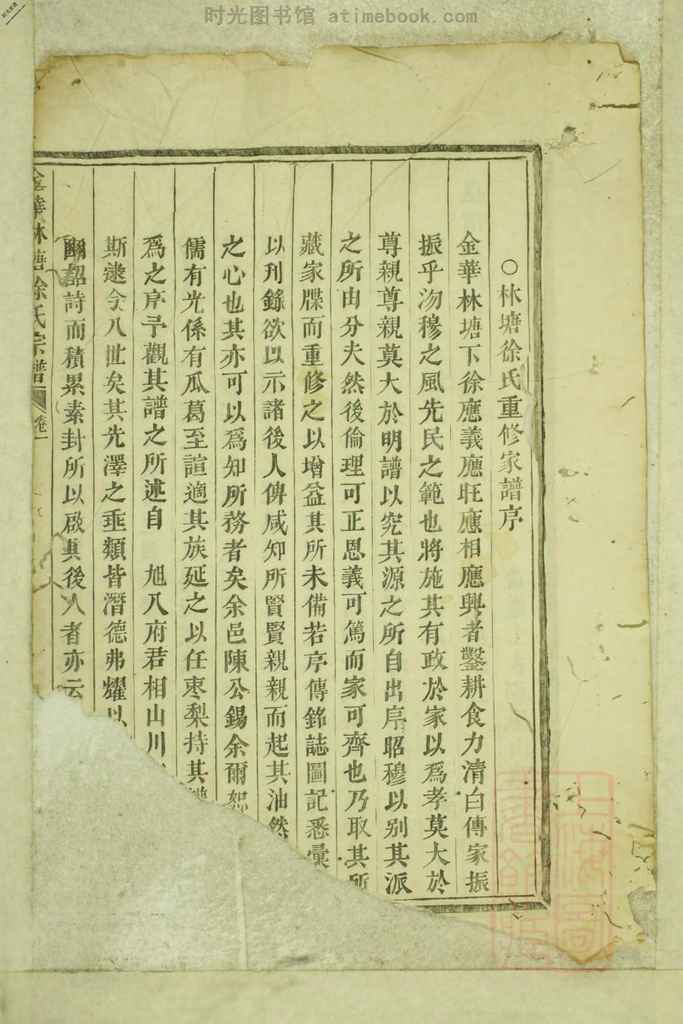 时光图书馆 atimebook.com
〇林塘徐氏重修家譜序
金華林塘下徐應義應旺應相應興者鑿耕食力清白傳家振
振乎沕穆之風先民之範也將施其有政於家以爲孝莫大於
尊親尊親莫大於明譜以究其源之所自出序昭穆以别其派
之所由分夫然後倫理可正恩義可篤而家可齊也乃取其所
藏家牒而重修之以增益其所未備若序傳銘誌圖記悉彙
以刋錄欲以示諸後人俾咸知所賢賢親親而起其油然
之心也其亦可以爲知所務者矣余邑陳公錫余爾恕
儒有光係有瓜葛至誼適其族延之以任枣梨持其譜
爲之序予觀其譜之所述自 旭八府君相山川
斯逮今八世矣其先澤之垂類皆潛德弗耀以
詔詩而積累素封所以啟其後人者亦云
金華林塘徐氏宗譜 卷一